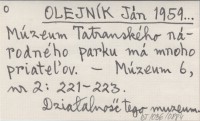 O
OLEJNÍK Ján 1959...
Múzeum Tatranského ná-
rodného parku má mnoho
priateľov. – Múzeum 6,
nr 2: 221-223.
Działalność tego muzeum.